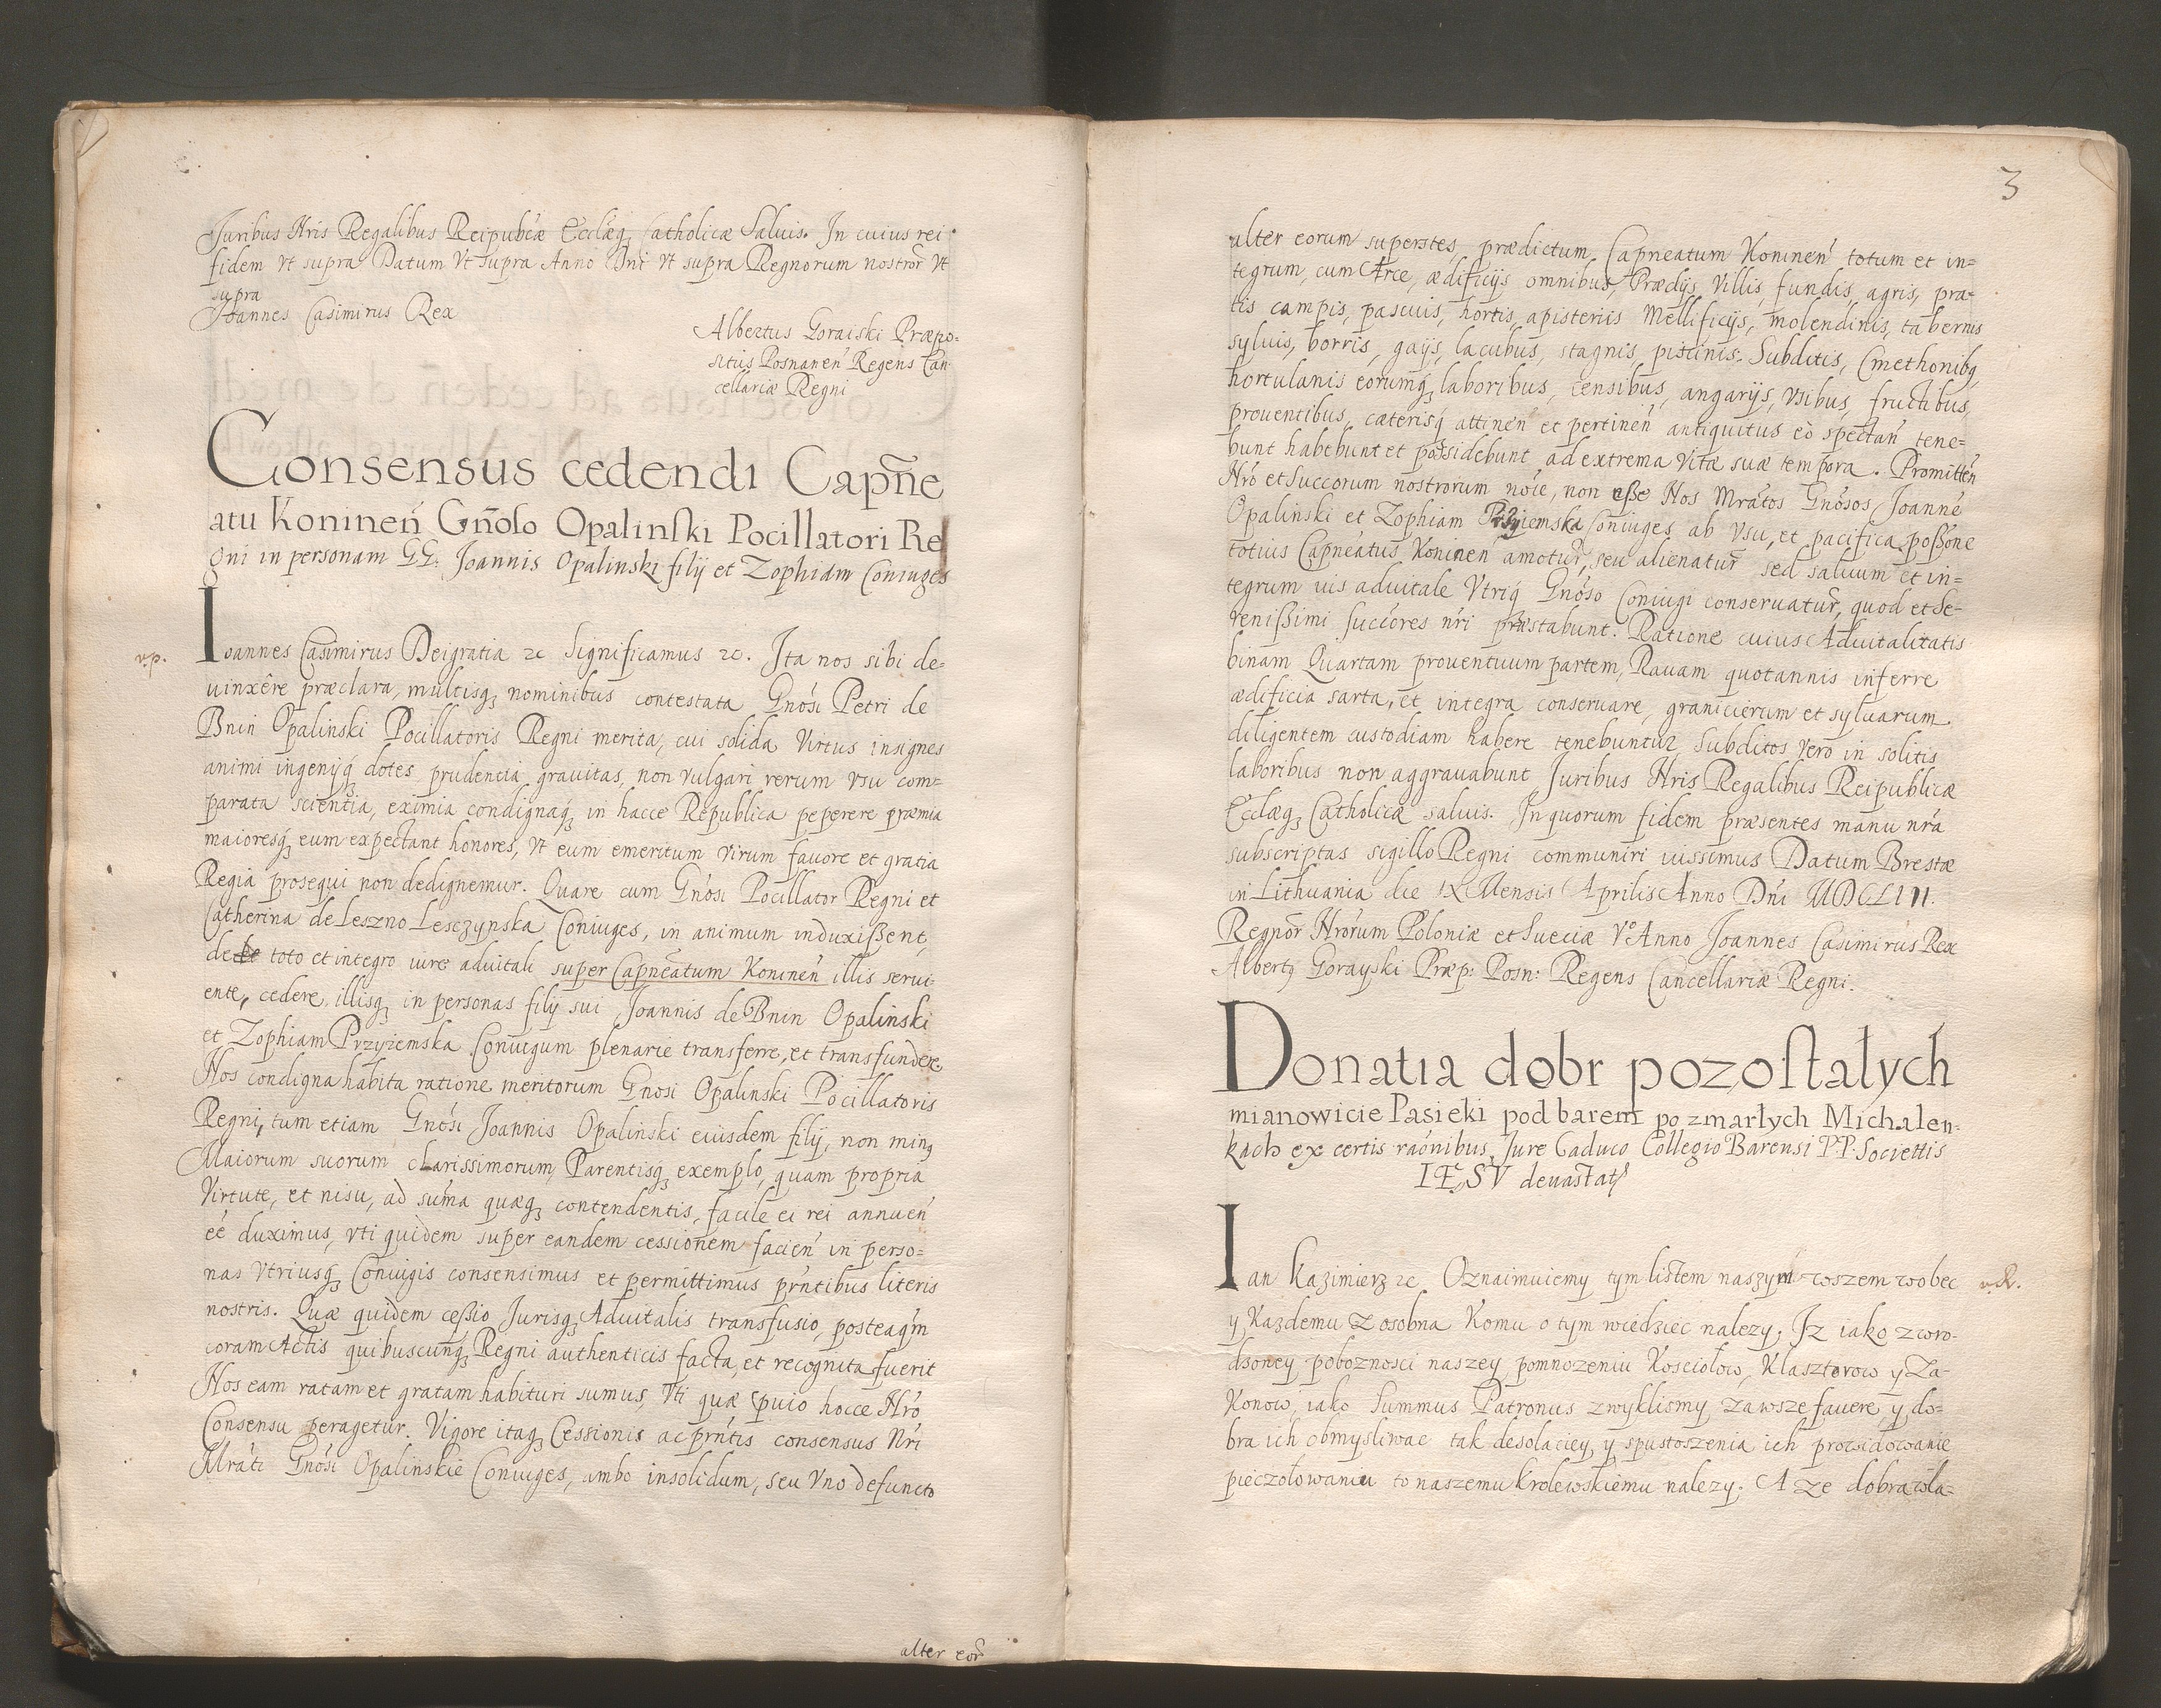 Juribus Nris Regalibus Reipubcæ Ecclæq; Catholicæ Saluis. In cuius rei
fidem vt supra Datum vt supra Anno Dni vt supra Regnorum nostror vt
supra
Joannes Casimirus Rex
Albertus Goraiski Præpo-
situs Posnanen Regens Can
cellariæ Regni
Consensus cedendi Capñe
atu Koninen Gñolo Opalinski Pocillatori Re
gni in personam GG. Joannis Opalinski filij et Zophiam Coniuges
Ioannes Casimirus Dei gratia &c Significamus &c. Ita nos sibi de-
v.p.
uinxêre præclara, multisq; nominibus contestata Gnosi Petri de
Bnin Opalinski Pocillatoris Regni merita, cui solida Virtus insignes
animi ingenijq; dotes prudencia grauitas, non vulgari rerum vsu com-
parata scientia, eximia condignaq; in hacce Republica peperere præmia
maioresq; eum expectant honores, vt eum emeritum virum fauore et gratia
Regia prosequi non dedignemur. Quare cum Gnosi Pocillator Regni et
Catherina de Leszno Lesczynska Coniuges, in animum induxißent,
de toto et integro iure aduitali super Capneatum Koninen illis serui
ente, cedere illisq; in personas filij sui Joannis de Bnin Opalinski
et Zophiam Przyiemska Coniugum plenarie transferre, et transfundere
Nos condigna habita ratione meritorum Gnosi Opalinski Pocillatoris
Regni, tum etiam Gnosi Joannis Opalinski eiusdem filij, non minq
Maiorum suorum clarissimorum, Parentisq; exemplo, quam propria
Virtute, et nisu, ad suma quæq; contendentis, facile ei rei annuen
eé duximus, vti quidem super eandem cessionem facien in perso-
nas vtriusq; Coniugis consensimus et permittimus prntibus literis
nostris. Quæ quidem ceßio Jurisq; Aduitalis transfusio, posteaqm
coram Actis quibuscunq; Regni authenticis facta, et recognita fuerit
Nos eam ratam et gratam habituri sumus, vti quæ puio hocce Nro
Consensu peragetur. Vigore itaq; Cessionis ac prntis consensus Nri
Mrati Gnosi Opalinskie Coniuges, ambo insolidum, seu vno defuncto
alter eor
3
alter eorum superstes, prædictum Capneatum Koninen totum et in-
tegrum, cum Arce, ædificijs omnibus, Prædijs, Villis, fundis, agris, pra-
tis campis, pascuis, hortis, apisteriis Mellificijs, molendinis, tabernis
syluis, borris, gaijs, lacubus, stagnis, piscinis, Subditis, Cmethonibq,
hortulanis eorumq; laboribus, censibus, angarijs, vsibus, fructibus,
prouentibus, cæterisq; attinen et pertinen antiquitus eò spectan tene-
bunt habebunt et possidebunt ad extrema vitæ suæ tempora. Promitten
Nro et Succorum nostrorum noie, non eße Nos Mratos Gnosos Joanne
Opalinski et Zophiam Przyiemska Coniuges ab vsu, et pacifica poßone
totius Capneatus Koninen amotur, seu alienatur sed saluum et in-
tegrum ius aduitale Vtriq; Gnoso Coniugi conseruatur, quod et Se-
renißimi succores nri præstabunt. Ratione cuius Aduitalitatis
binam Quartam prouentuum partem, Rauam quotannis inferre
ædificia sarta, et integra conseruare, granicierum et syluarum
diligentem custodiam habere tenebuntur Subditos vero in solitis
laboribus non aggrauabunt Juribus Nris Regalibus Reipublicæ
Ecclæq; Catholicæ saluis. In quorum fidem præsentes manu nra
subscriptas sigillo Regni communiri iussimus Datum Brestæ
in Lithuania die IX Mensis Aprilis Anno Dni MDCLIII.
Regnor Nrorum Poloniæ et Sueciæ Vo Anno Joannes Casimirus Rex
Albertq Gorayski Præp: Posn: Regens Cancellariæ Regni.
Donatia dobr pozostałych
mianowicie Pasieki pod barem po zmarłych Michalen-
kach ex certis raonibus, Jure Caduco Collegio Barensi P.P. Societtis
IESV deuastat
Ian Kazimierz &c Oznaimuiemy tym listem naszym wszem wobec
v.R.
y Kazdemu zosobna Komu o tym wiedziec nalezy, Iz iako z wro-
dsoney poboznosci naszey pomnozeniu Kosciołow, Klasztorow y Za-
Konow, iako Summus Patronus zwyklismy zawsze fauere, y do-
bra ich obmysliwac tak desolaciey, y spustoszenia ich prowidowanie
pieczołowaniu to naszemu krolewskiemu nalezy. A ze dobra wła-